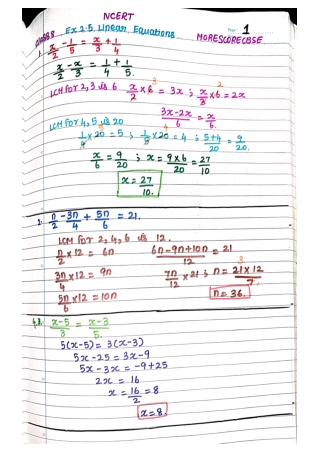 NCERT
class 8 Ex 2.5 Linear Equations 1
MORESCORECBSE
1. x/2 - 1/5 = x/3 + 1/4
x/2 - x/3 = 1/4 + 1/5.
LCM for 2,3 is 6 x/2 × 6 = 3x ; x/3 × 6 = 2x
3 2
3x-2x/6 = x/6.
LCM for 4,5 is 20
1/4 × 20 = 5 ; 1/5 × 20 = 4 ; 5+4/20 = 9/20.
x/6 = 9/20 ; x = 9×6/20 = 27/10
x = 27/10.
2. n/2 - 3n/4 + 5n/6 = 21.
LCM for 2,4,6 is 12.
n/2 × 12 = 6n 6n-9n+10n/12 = 21
3n/4 × 12 = 9n 7n/12 × 21 ; n = 21×12/7
5n/6 × 12 = 10n n = 36.
x-5/3 = x-3/5.
5(x-5) = 3(x-3)
5x-25 = 3x-9
5x-3x = -9+25
2x = 16
x = 16/2 = 8
x = 8.